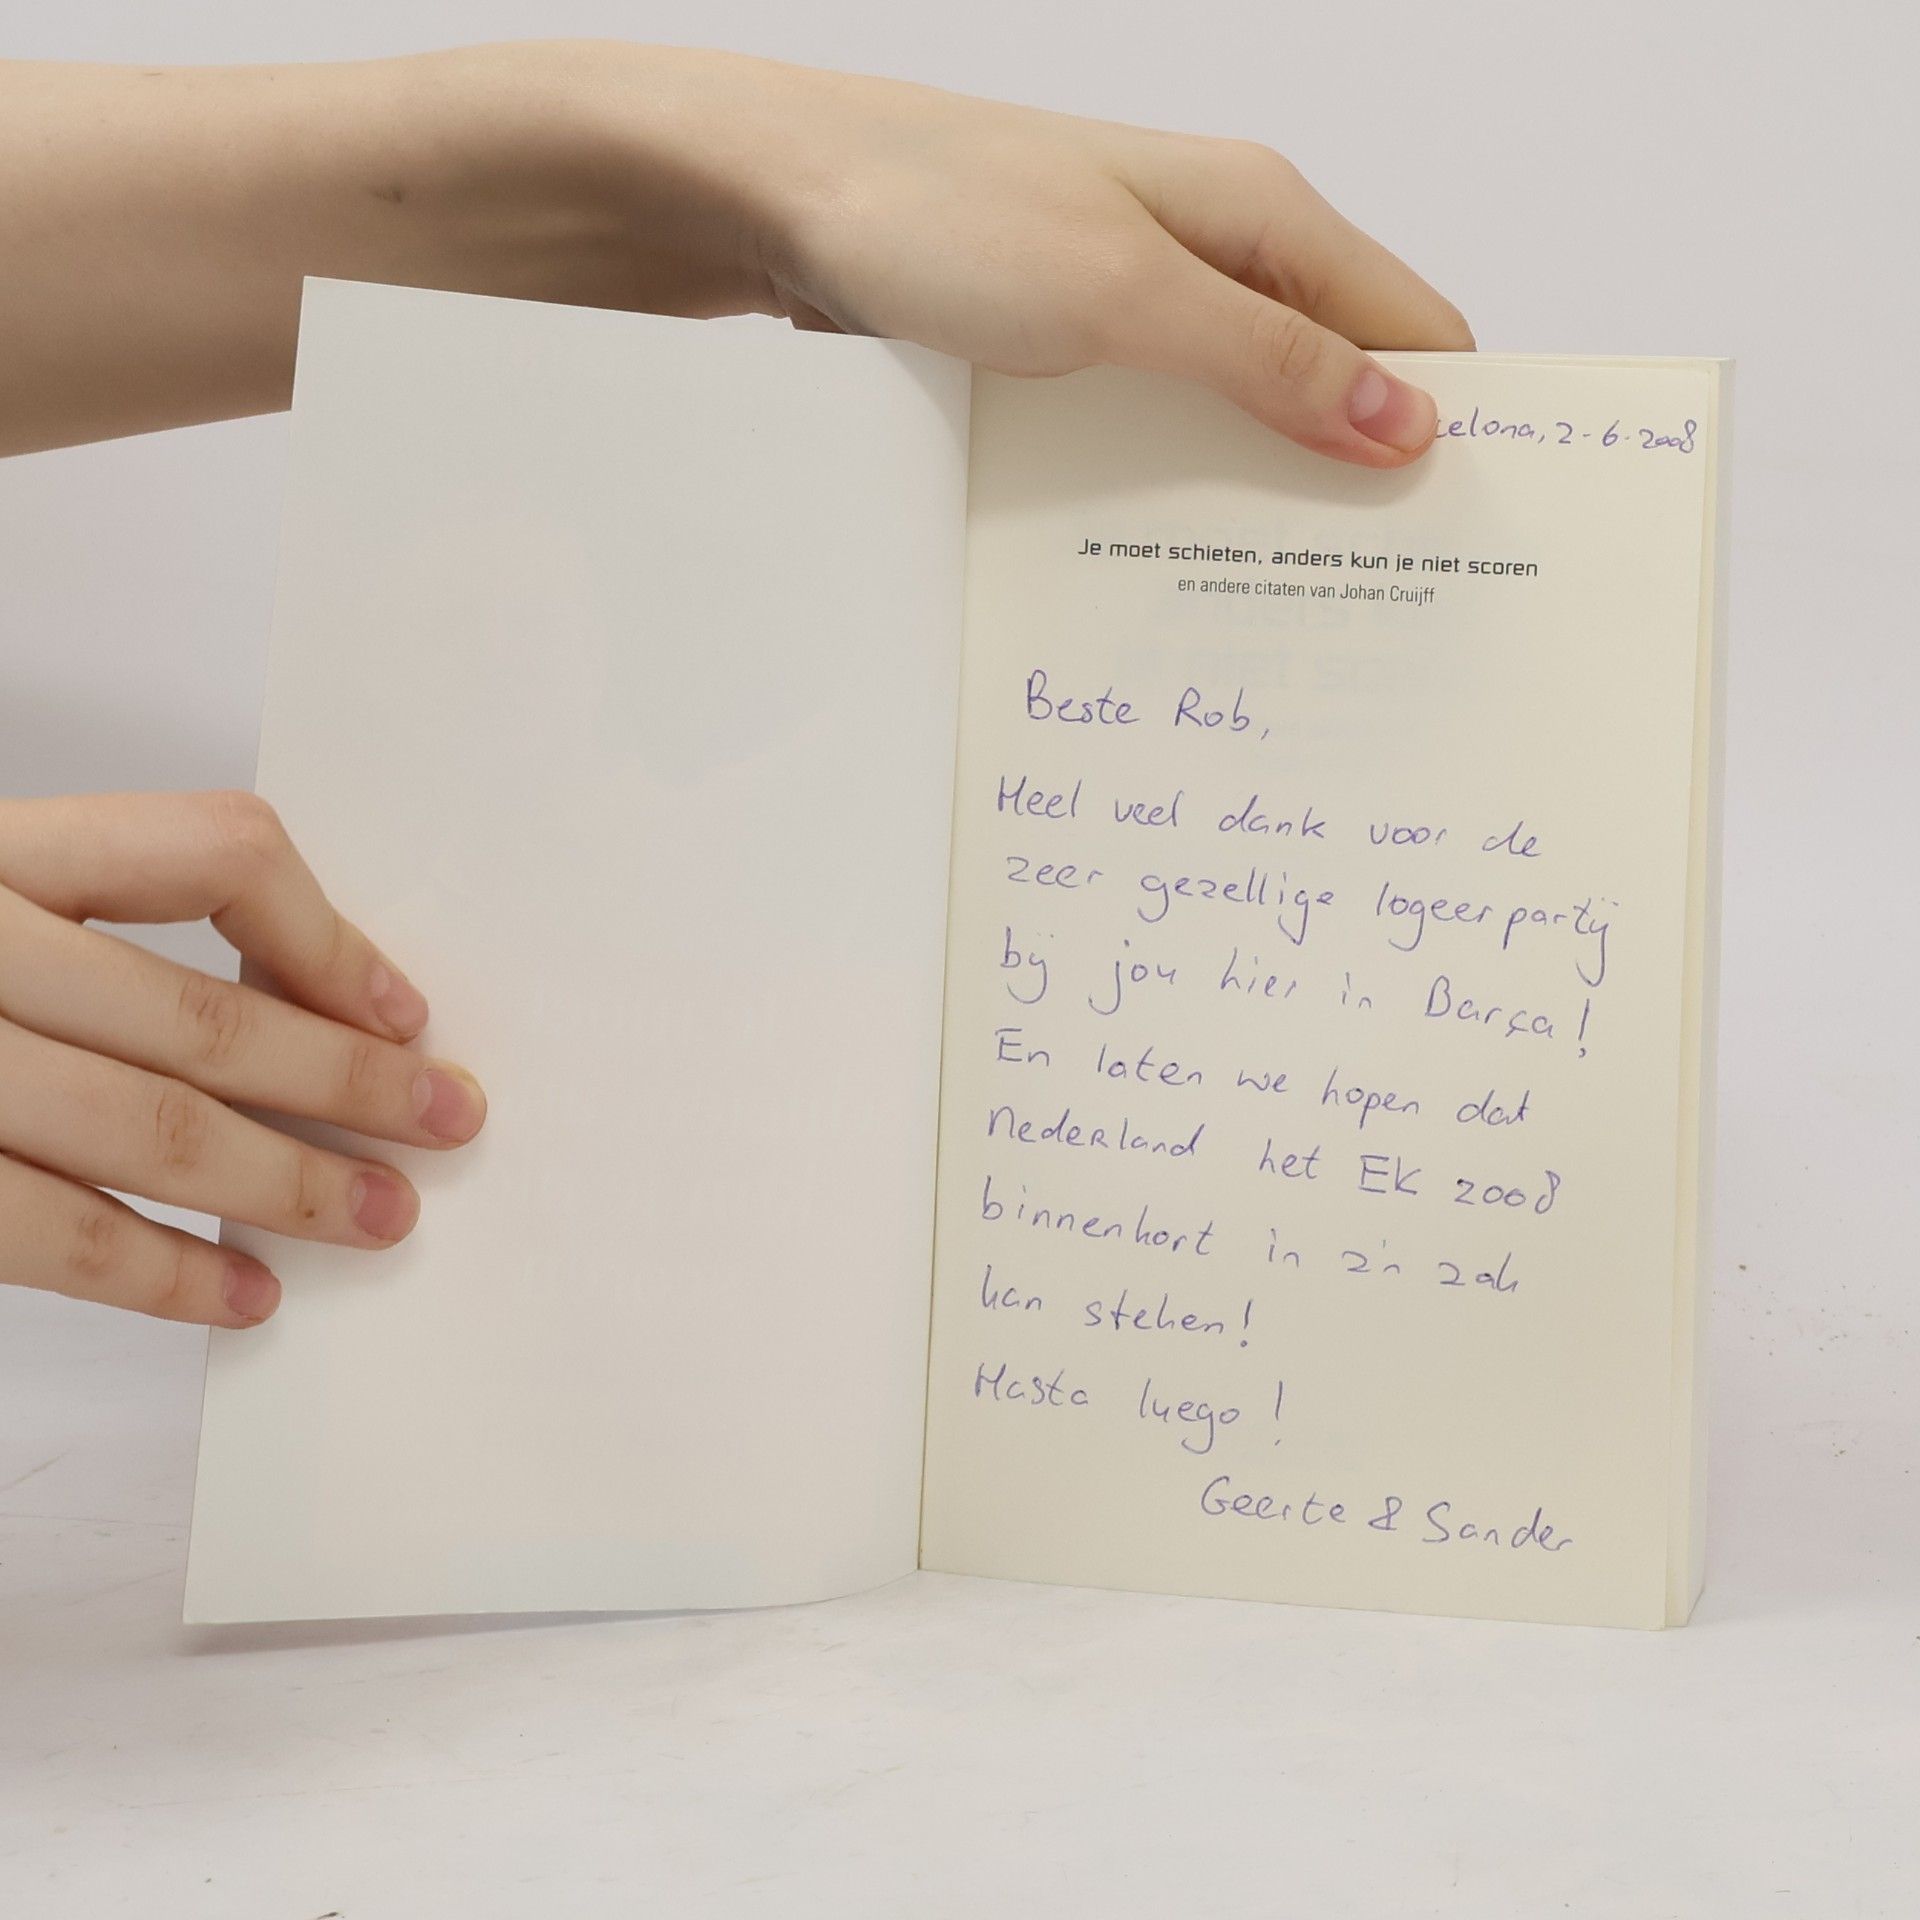 celona, 2-6-2008
Je moet schieten, anders kun je niet scoren
en andere citaten van Johan Cruijff
Beste Rob,
Heel veel dank voor de
zeer gezellige logeerpartij
bij jou hier in Barça!
En laten we hopen dat
Nederland het EK 2008
binnenkort in z'n zak
kan steken!
Hasta luego!
Geerte & Sander